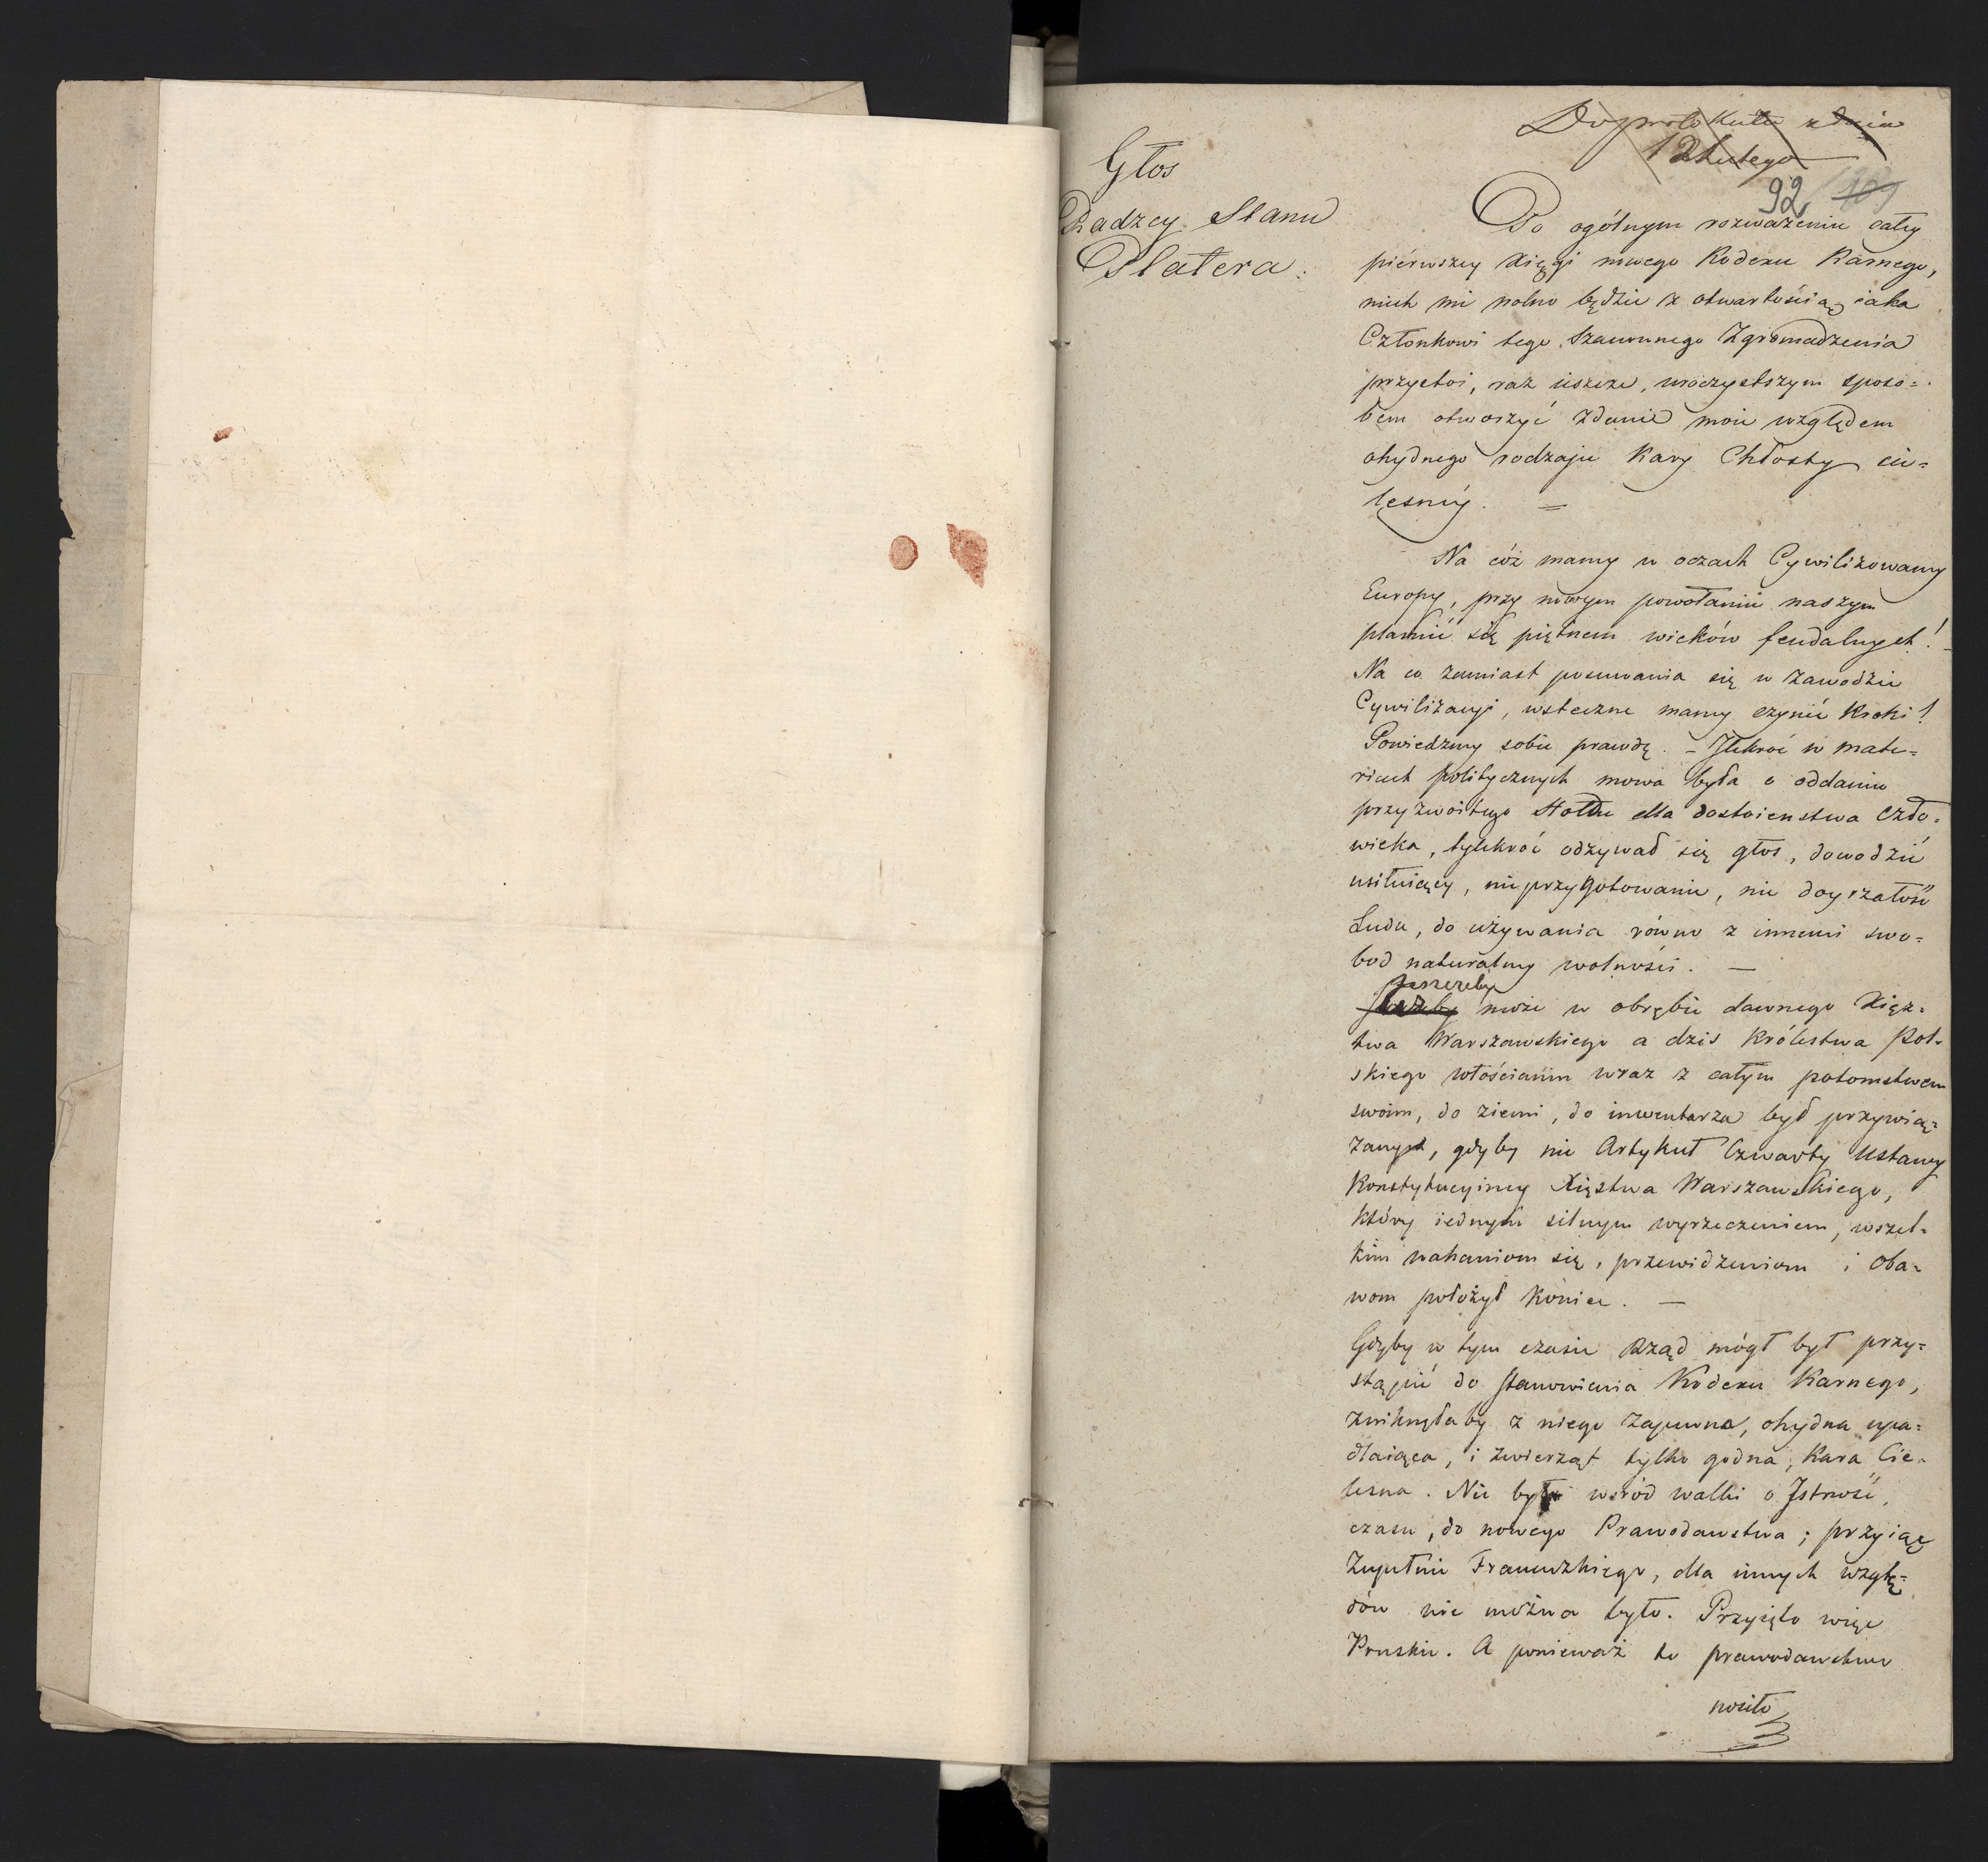 Do protokułu z dnia
12 Lutego
92 109
Głos
Radzcy Stanu
Platera.
Po ogólnym rozważeniu całey
piérwszey Xięgi nowego Kodexu Karnego,
niech mi wolno będzie z otwartością iaka
Członkowi tego Szanownego Zgromadzenia
przystoi, raz ieszcze, uroczystszym sposo=
bem otworzyć zdanie moie względem
ohydnego rodzaju Kary Chłosty cie=
lesnéy. =
Na cóż mamy w oczach Cywilizowaney
Europy, przy nowym powołaniu naszym
plamić się piętnem wieków feudalnych!
Na co zamiast posuwania się w zawodzie
Cywilizacyi, wsteczne mamy czynić Kroki!
Powiedzmy sobie prawdę. – Ilekroć w mate=
riach politycznych mowa była o oddaniu
przyzwoitego Hołdu dla dostoienstwa Czło=
wieka, tylekroć odzywał się głos, dowodzić
usiłuiący, nieprzygotowanie, nie doyrzałość
Ludu, do używania równo z innemi swo=
bod naturalney wolności. —
Jeszczeby
może w obrębie dawnego Xięz=
twa Warszawskiego a dzis Królestwa Pol=
skiego włościanin wraz z całym potomstwem
swoim, do ziemi, do inwentarza był przywią=
zanym, gdyby nie Artykuł Czwarty Ustawy
Konstytucyiney Xięstwa Warszawskiego,
który iednym silnym wyrzeczeniem, wszel=
kim wahaniom się, przewidzeniom i Oba=
wom położył Koniec. —
Gdyby w tym czasie Rząd mógł był przy=
stąpić do stanowienia Kodexu Karnego,
zniknęłaby z niego zapewne, ohydna upa=
dlaiąca, i zwierząt tylko godna, Kara Cie=
lesna. Nie było wśród walki o Istność,
czasu, do nowego Prawodawstwa; przyiąć
Zupełnie Francuzkiego, dla innych wzglę=
dów nie można było. Przyięto więc
Pruskie. A ponieważ to prawodawstwo
nosiło